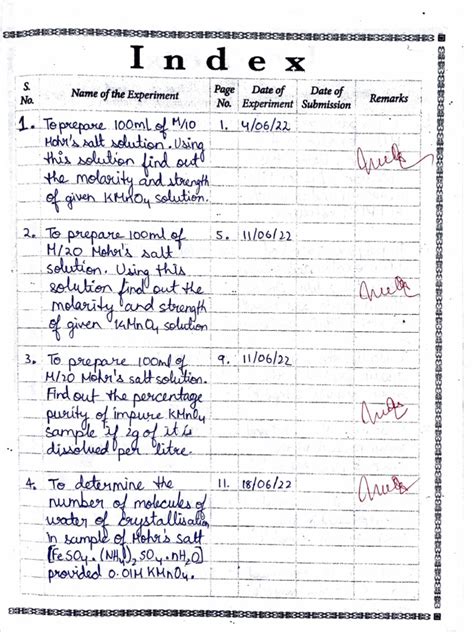 Index
S. No. Name of the Experiment Page No. Date of Experiment Date of Submission Remarks
1. To prepare 100ml of M/10 1. 4/06/22
Mohr's salt solution. Using
this solution find out
the molarity and strength
of given KMnO4 solution.
2. To prepare 100ml of 5. 11/06/22
M/20 Mohr's salt
solution. Using this
solution find out the
molarity and strength
of given KMnO4 solution
3. To prepare 100ml of 9. 11/06/22
M/20 Mohr's salt solution.
Find out the percentage
purity of impure KMnO4
sample if 2g of it is
dissolved per litre.
4. To determine the 11. 18/06/22
number of molecules of
water of crystallisation
in sample of Mohr's salt
[FeSO4.(NH4)2SO4.nH2O]
provided 0.01M KMnO4.